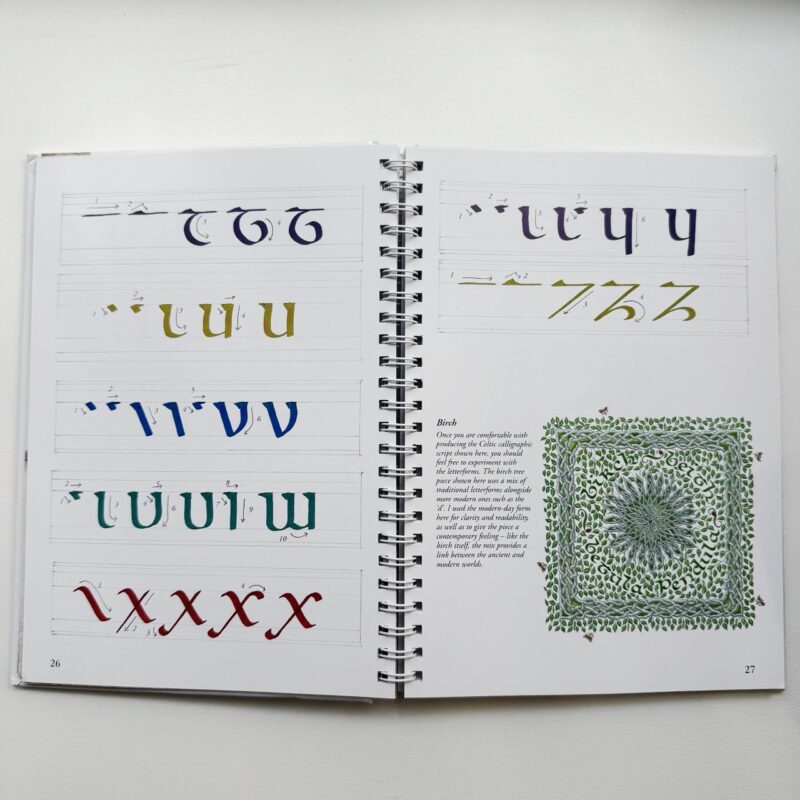 1 2 3 4
t
1 2 3 4
u
1 2 3 4 5 6
v
1 2 3 4 5 6 7 8 9 10
w
1 2 3 4
x
26
1 2 3 4 5 6
y
1 2 3 4
z
Birch
Once you are comfortable with
producing the Celtic calligraphic
script shown here, you should
feel free to experiment with
the letterforms. The birch tree
piece shown here uses a mix of
traditional letterforms alongside
more modern ones such as the
'd'. I used the modern-day form
here for clarity and readability,
as well as to give the piece a
contemporary feeling – like the
birch itself, the mix provides a
link between the ancient and
modern worlds.
27